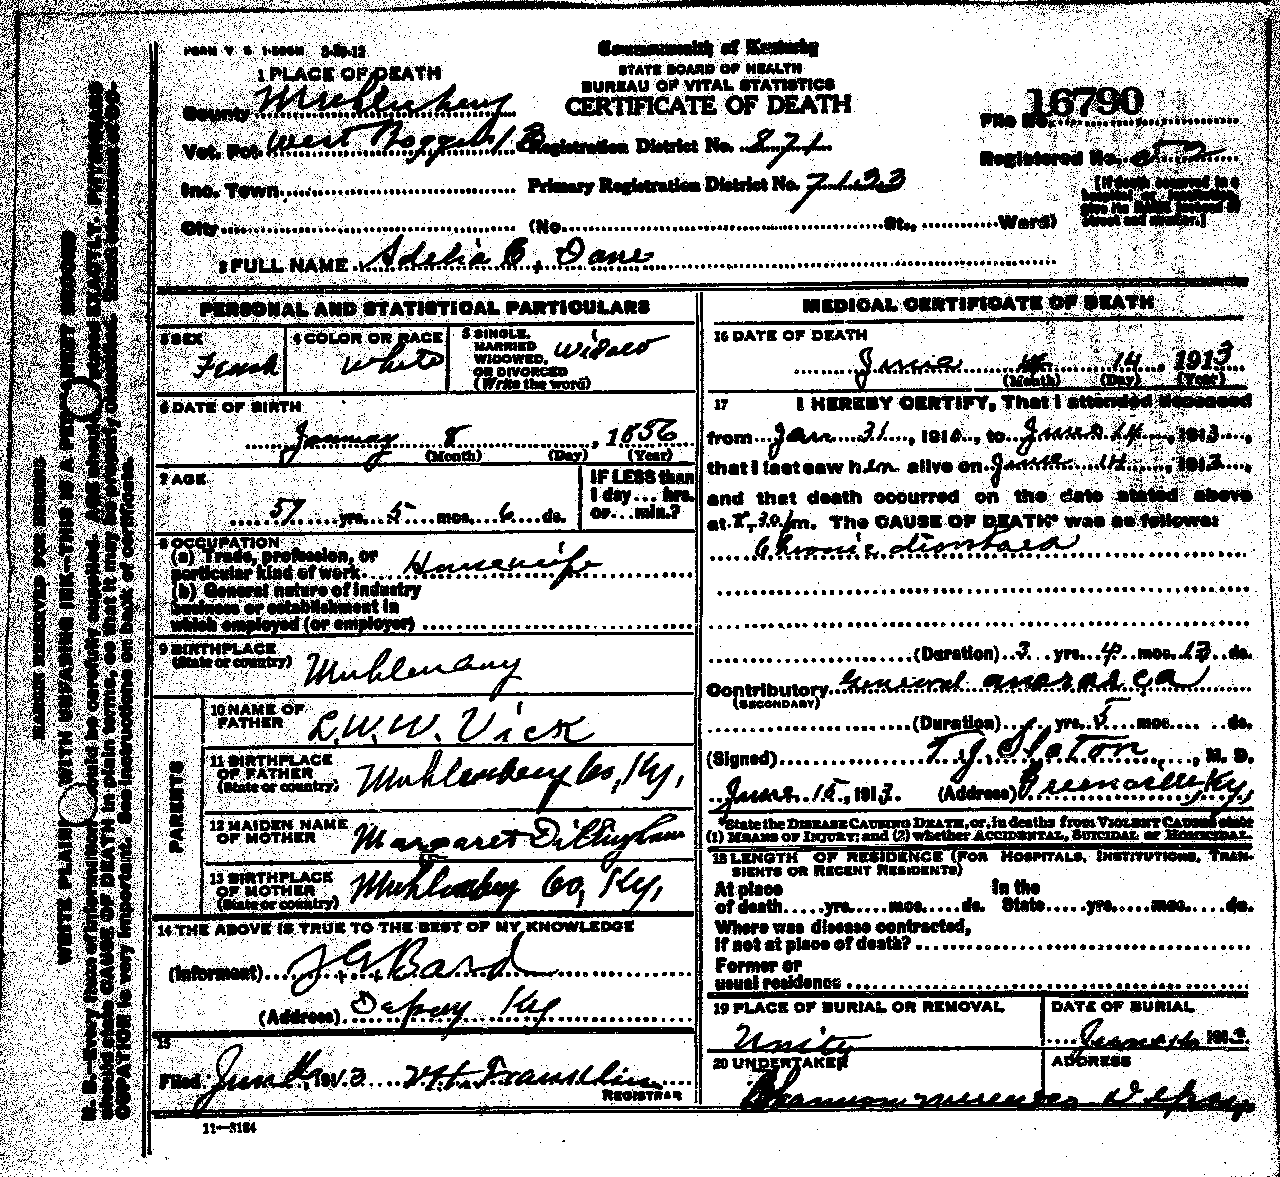 FORM V. S. 1-500M 2-26-12
Commonwealth of Kentucky
STATE BOARD OF HEALTH
BUREAU OF VITAL STATISTICS
CERTIFICATE OF DEATH
1 PLACE OF DEATH
County Muhlenberg
Vot. Pct. West
Registration District No. 871
Inc. Town
Primary Registration District No. 7133
City (No. St., Ward)
File No. 16790
Registered No.
[If death occurred in a
hospital or institution
give its NAME instead of
street and number.]
2 FULL NAME Adelia C. Dane
PERSONAL AND STATISTICAL PARTICULARS
3 SEX
4 COLOR OR RACE White
5 SINGLE,
MARRIED
WIDOWED,
OR DIVORCED
(Write the word)
Widow
6 DATE OF BIRTH
January 8, 1856
(Month) (Day) (Year)
7 AGE
57 yrs. 5 mos. 6 ds.
IF LESS than
1 day... hrs.
or... min.?
8 OCCUPATION
(a) Trade, profession, or
particular kind of work Housewife
(b) General nature of industry
business or establishment in
which employed (or employer)
9 BIRTHPLACE
(State or country)
PARENTS
10 NAME OF
FATHER
L. W. W. Vick
11 BIRTHPLACE
OF FATHER
(State or country)
Muhlenberg Co, Ky,
12 MAIDEN NAME
OF MOTHER
Margaret Dillingham
13 BIRTHPLACE
OF MOTHER
(State or country)
Muhlenberg Co, Ky,
14 THE ABOVE IS TRUE TO THE BEST OF MY KNOWLEDGE
(Informant) Bard
(Address) Depoy Ky
15
Filed June 1913 Franklin
REGISTRAR
11—3184
MEDICAL CERTIFICATE OF DEATH
16 DATE OF DEATH
June 14, 1913
(Month) (Day) (Year)
17 I HEREBY CERTIFY, That I attended deceased
from Jan 31, 191, to June 14, 1913,
that I last saw h alive on June 14, 1913,
and that death occurred on the date stated above
at 30 m. The CAUSE OF DEATH* was as follows:
Chronic
(Duration) 3 yrs. 4 mos. 13 ds.
Contributory General
(SECONDARY)
(Duration) yrs. 5 mos. ds.
(Signed) T. J. Slaton, M. D.
June 15, 1913. (Address) Greenville, Ky,
*State the DISEASE CAUSING DEATH, or, in deaths from VIOLENT CAUSES state
(1) MEANS OF INJURY; and (2) whether ACCIDENTAL, SUICIDAL or HOMICIDAL.
18 LENGTH OF RESIDENCE (FOR HOSPITALS, INSTITUTIONS, TRAN-
SIENTS OR RECENT RESIDENTS)
At place In the
of death yrs. mos. ds. State yrs. mos. ds.
Where was disease contracted,
if not at place of death?
Former or
usual residence
19 PLACE OF BURIAL OR REMOVAL
Unity
DATE OF BURIAL
June 1913
20 UNDERTAKER
ADDRESS
Depoy
MARGIN RESERVED FOR BINDING
WRITE PLAINLY WITH UNFADING INK—THIS IS A PERMANENT RECORD
N. B.—Every item of information should be carefully supplied. AGE should be stated EXACTLY. PHYSICIANS
should state CAUSE OF DEATH in plain terms, so that it may be properly classified. Exact statement of OC-
CUPATION is very important. See instructions on back of certificate.